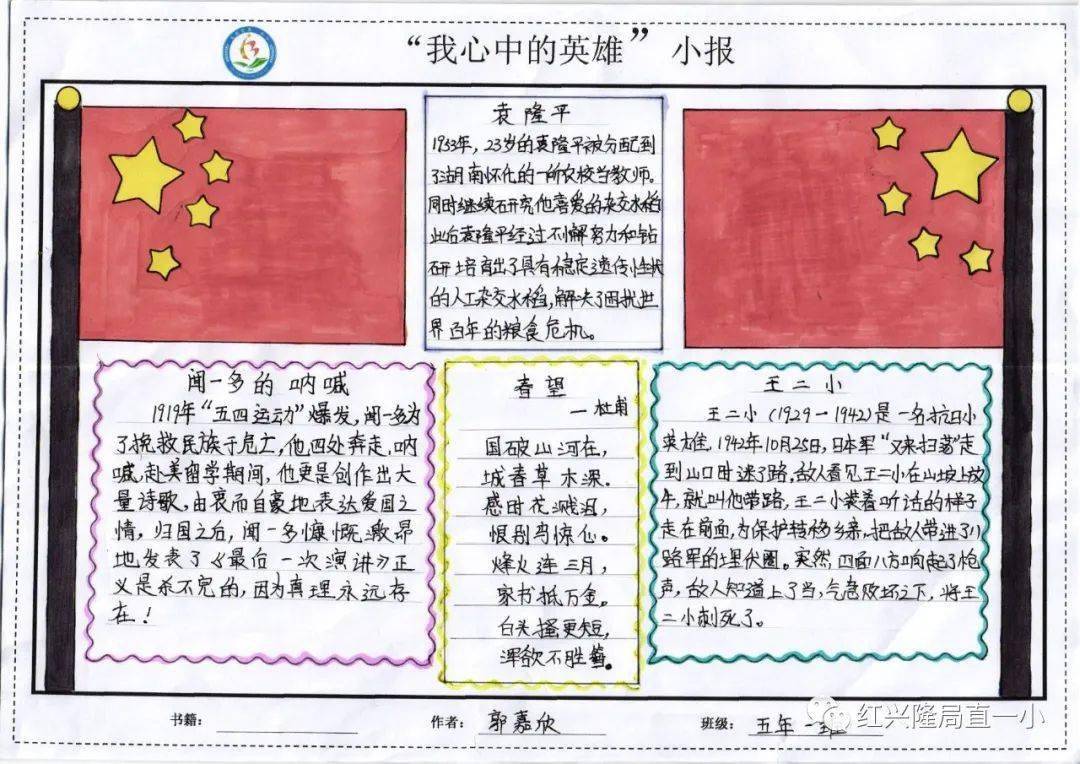 “我心中的英雄”小报
袁隆平
1953年，23岁的袁隆平被分配到
了湖南怀化的一所农校当教师。
同时继续研究他喜爱的杂交水稻
此后袁隆平经过不懈努力和钻
研培育出了具有稳定遗传性状
的人工杂交水稻，解决了困扰世
界百年的粮食危机。
闻一多的呐喊
1919年“五四运动”爆发，闻一多为
了挽救民族于危亡，他四处奔走，呐
喊，赴美留学期间，他更是创作出大
量诗歌，由衷而自豪地表达爱国之
情，归国之后，闻一多慷慨激昂
地发表了《最后一次演讲》正
义是杀不完的，因为真理永远存
在！
春望
—杜甫
国破山河在，
城春草木深。
感时花溅泪，
恨别鸟惊心。
烽火连三月，
家书抵万金。
白头搔更短，
浑欲不胜簪。
王二小
王二小（1929－1942）是一名抗日小
英雄，1942年10月25日，日本军“又来扫荡”走
到山口时迷了路，敌人看见王二小在山坡上放
牛，就叫他带路，王二小装着听话的样子
走在前面，为保护转移乡亲，把敌人带进了八
路军的埋伏圈。突然，四面八方响起了枪
声，敌人知道上了当，气急败坏之下，将王
二小刺死了。
书籍：
作者：郭嘉欣
班级：五年一班
红兴隆局直一小